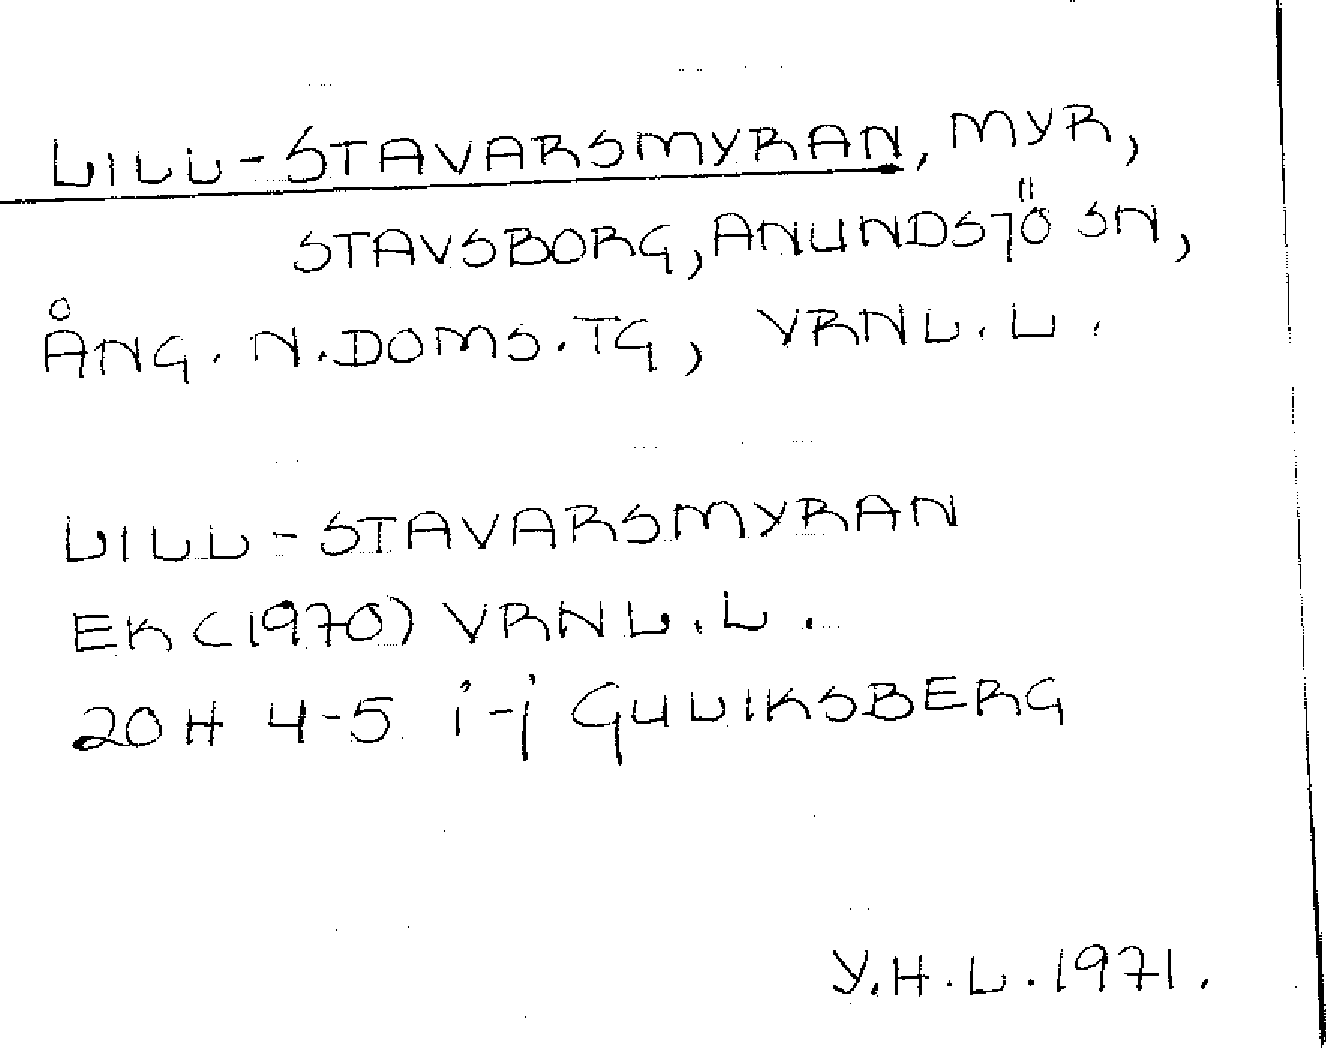 LILL-STAVARSMYRAN, MYR,
STAVSBORG, ANUNDSJÖ SN,
ÅNG. N. DOMS. TG, VRNL. L.
LILL-STAVARSMYRAN
EK (1970) VRNL. L.
20H 4-5 i-j GULIKSBERG
Y.H.L. 1971.